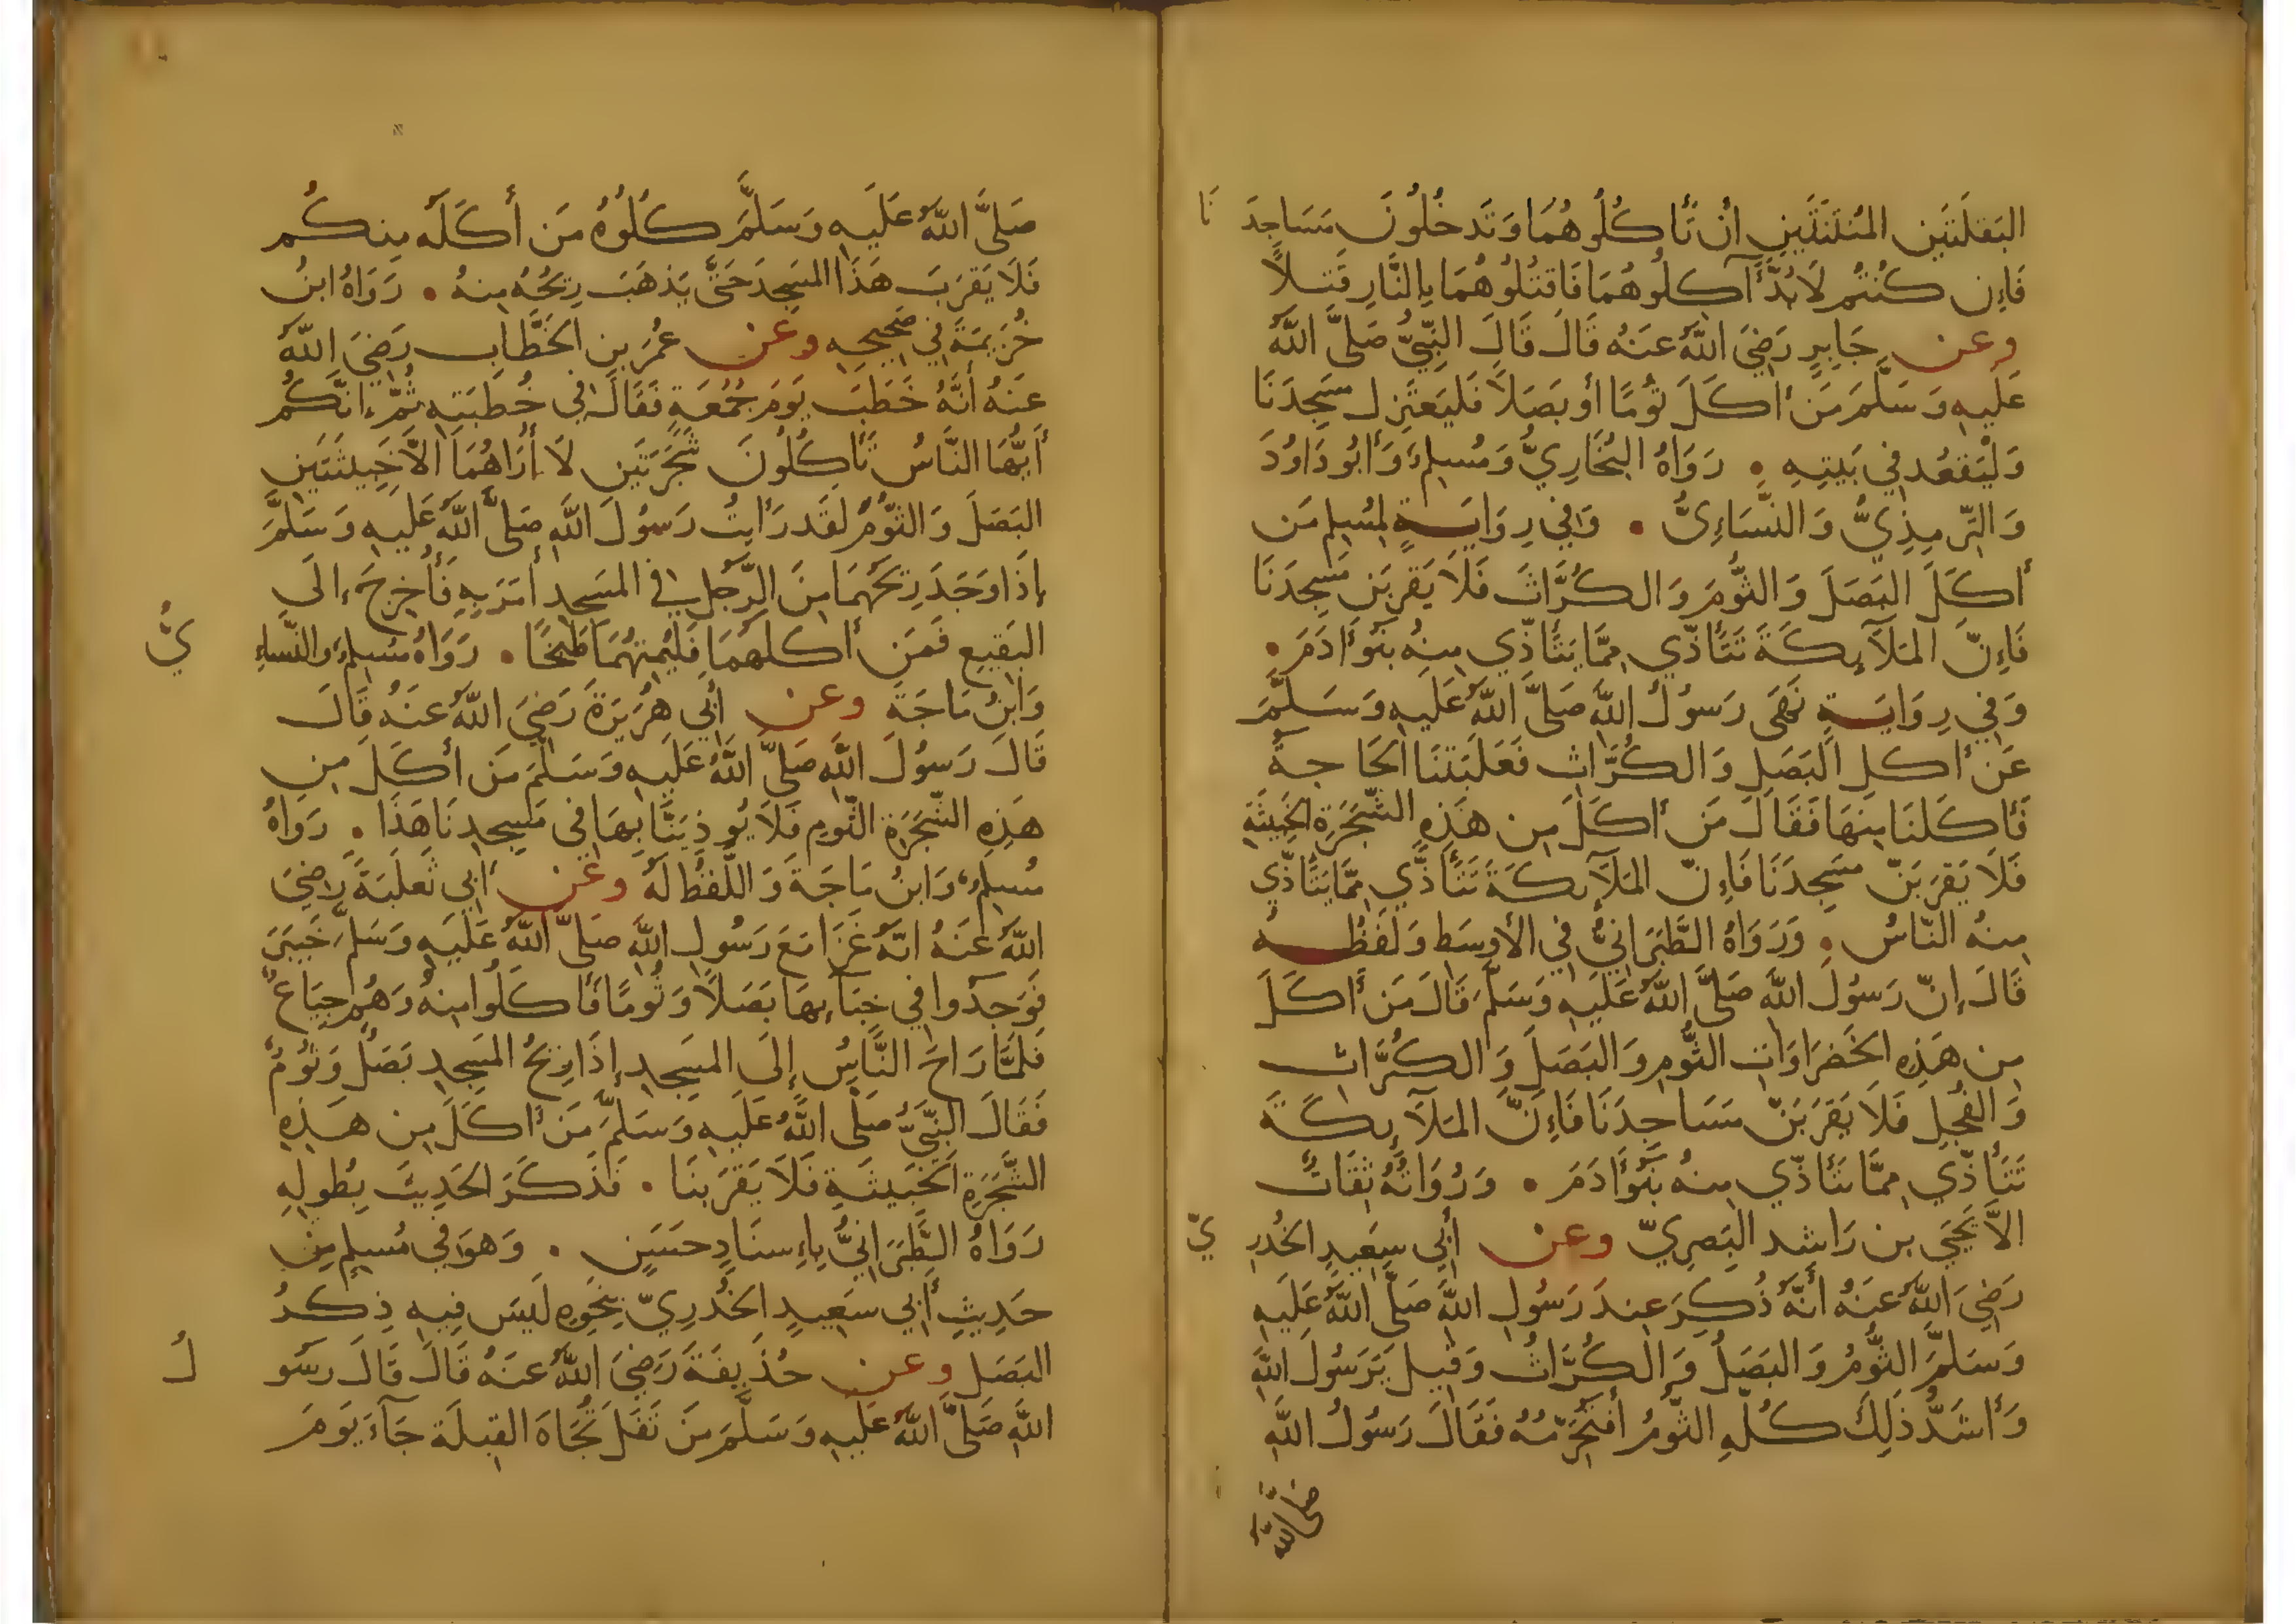 البَقلَتَين المُنتَنَتَينِ أن تَأكُلُوهُمَا وَتَدخُلُونَ مَسَاجِدَنَا
فَإِن كُنتُم لَابُدَّ آكِلُوهُمَا فَاقتُلُوهُمَا بِالنَّارِ قَتلًا
وعن جَابِرٍ رَضِيَ اللَّهُ عَنهُ قَالَ قَالَ النَّبِيُّ صَلَّى اللَّهُ
عَلَيهِ وَسَلَّمَ مَن أكَلَ ثُومًا أو بَصَلًا فَليَعتَزِل مَسجِدَنَا
وَلْيَقعُد فِي بَيتِهِ . رَوَاهُ البُخَارِيُّ وَمُسلِمٌ وَأبُودَاوُدَ
وَالتِّرمِذِيُّ وَالنَّسَاءِيُّ . وَفِي رِوَايَةٍ لِمُسلِمٍ مَن
أكَلَ البَصَلَ وَالثُّومَ وَالكُرَّاثَ فَلَا يَقرَبَن مَسجِدَنَا
فَإِنَّ المَلَآئِكَةَ تَتَأذَّي مِمَّا يَتَأذَّي مِنهُ بَنُوأَادَمَ .
وَفِي رِوَايَةٍ نَهَى رَسُولُ اللَّهِ صَلَّى اللَّهُ عَلَيهِ وَسَلَّمَ
عَن أكلِ البَصَلِ وَالكُرَّاثِ فَغَلَبَتنَا الحَاجَةُ
فَأكَلنَا مِنهَا فَقَالَ مَن أكَلَ مِن هَذِهِ الشَّجَرَةِ الخَبِيثَةِ
فَلَا يَقرَبَنَّ مَسجِدَنَا فَإِنَّ المَلَآئِكَةَ تَتَأذَّي مِمَّا يَتَأذَّي
مِنهُ النَّاسُ . وَرَوَاهُ الطَّبَرَانِيُّ فِي الأوسَطِ وَلَفظُهُ
قَالَ إِنَّ رَسُولَ اللَّهِ صَلَّى اللَّهُ عَلَيهِ وَسَلَّمَ قَالَ مَن أكَلَ
مِن هَذِهِ الخَضرَاوَاتِ الثُّومِ وَالبَصَلِ وَالكُرَّاثِ
وَالفُجلِ فَلَا يَقرَبَنَّ مَسَاجِدَنَا فَإِنَّ المَلَآئِكَةَ
تَتَأذَّي مِمَّا تَتَأذَّي مِنهُ بَنُوأَادَمَ . وَرُوَاتُهُ ثِقَاتٌ
الَّا يَحيَي بن رَاشد البَصرِيّ وعن أبِي سَعِيدٍ الخُدرِيّ
رَضِيَ اللَّهُ عَنهُ أنَّهُ ذُكِرَ عِندَ رَسُولِ اللَّهِ صَلَّى اللَّهُ عَلَيهِ
وَسَلَّمَ الثُّومُ وَالبَصَلُ وَالكُرَّاثُ وَقِيلَ يَرَسُولَ اللَّهِ
وَأشَدُّ ذَلِكَ كُلِّهِ الثُّومُ أفَتُحَرِّمُهُ فَقَالَ رَسُولُ اللَّهِ
صَلَّى اللَّهُ
صَلَّى اللَّهُ عَلَيهِ وَسَلَّمَ كُلُوهُ مَن أكَلَهُ مِنكُم
فَلَا يَقرَبَ هَذَا المَسجِدَ حَتَّى يَذهَبَ رِيحُهُ مِنهُ . رَوَاهُ ابنُ
خُزَيمَةَ فِي صَحِيحِهِ وعن عُمَرَ بنِ الخَطَّابِ رَضِيَ اللَّهُ
عَنهُ أنَّهُ خَطَبَ يَومَ جُمُعَةٍ فَقَالَ فِي خُطبَتِهِ ثُمَّ إنَّكُم
أيُّهَا النَّاسُ تَأكُلُونَ شَجَرَتَينِ لَا أرَاهُمَا الاَّ خَبِيثَتَينِ
البَصَلَ وَالثُّومَ لَقَد رَأيتُ رَسُولَ اللَّهِ صَلَّى اللَّهُ عَلَيهِ وَسَلَّمَ
إذَا وَجَدَ رِيحَهُمَا مِنَ الرَّجُلِ فِي المَسجِدِ أمَرَ بِهِ فَأُخرِجَ إلَى
البَقِيعِ فَمَن أكَلَهُمَا فَليُمِتهُمَا طَبخًا . رَوَاهُ مُسلِمٌ والنَّساءِيُّ
وَابنُ مَاجَةَ وعن أبِي هُرَيرَةَ رَضِيَ اللَّهُ عَنهُ قَالَ
قَالَ رَسُولُ اللَّهِ صَلَّى اللَّهُ عَلَيهِ وَسَلَّمَ مَن أكَلَ مِن
هَذِهِ الشَّجَرَةِ الثُّومِ فَلَا يُوذِيَنَّا بِهَا فِي مَسجِدِنَا هَذَا . رَوَاهُ
مُسلِمٌ وَابنُ مَاجَةَ وَاللَّفظُ لَهُ وعن أبِي ثَعلَبَةَ رَضِيَ
اللَّهُ عَنهُ انَّهُ غَزَا مَعَ رَسُولِ اللَّهِ صَلَّى اللَّهُ عَلَيهِ وَسَلَّمَ خَيبَرَ
فَوَجَدُوا فِي جِنَآنِهَا بَصَلًا وَثُومًا فَأكَلُوا مِنهُ وَهُم جِيَاعٌ
فَلَمَّا رَاحَ النَّاسُ إلَى المَسجِدِ إذَا رِيحُ المَسجِدِ بَصَلٌ وَثُومٌ
فَقَالَ النَّبِيُّ صَلَّى اللَّهُ عَلَيهِ وَسَلَّمَ مَن أكَلَ مِن هَذِهِ
الشَّجَرَةِ الخَبِيثَةِ فَلَا يَقرَبنَا . فَذَكَرَ الحَدِيثَ بِطُولِهِ
رَوَاهُ الطَّبَرَانِيُّ بِإِسنَادٍ حَسَنٍ . وَهوَ فِي مُسلِمٍ مِن
حَدِيثِ أبِي سَعِيدٍ الخُدرِيّ بِنَحوِهِ لَيسَ فِيهِ ذِكرُ
البَصَلِ وعن حُذَيفَةَ رَضِيَ اللَّهُ عَنهُ قَالَ قَالَ رسُولُ
اللَّهِ صَلَّى اللَّهُ عَلَيهِ وَسَلَّمَ مَن تَفَلَ تُجَاهَ القِبلَةِ جَآءَ يَومَ